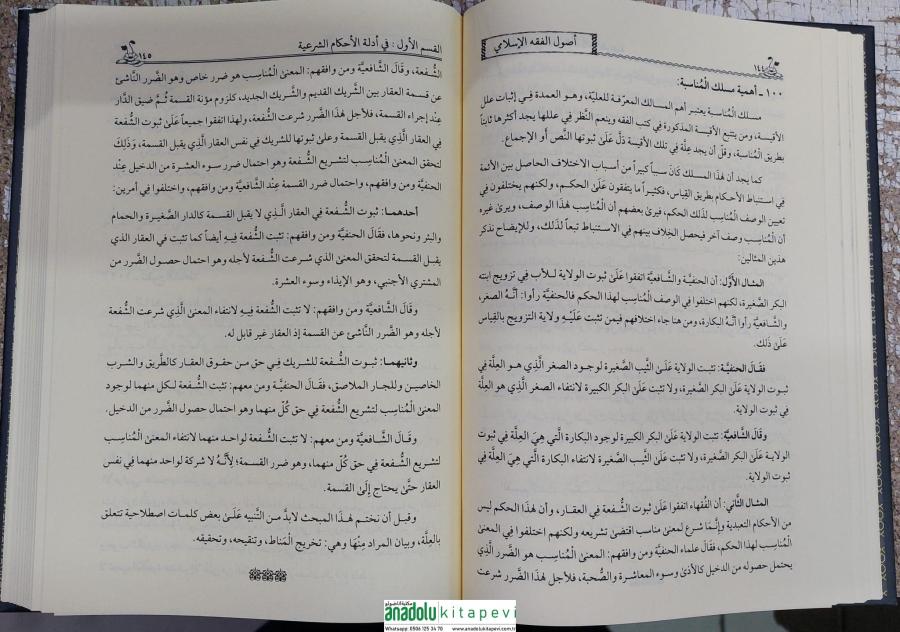 أصول الفقه الإسلامي
١٤٤
١٠٠ ـ أهمية مسلك الْمُناسبة:
مسلك الْمُناسبة يعتبر أهم المسالك المعرّفة للعليّة، وهو العمدة في إثبات علل
الأقيسة، ومن يتتبع الأقيسة المذكورة في كتب الفقه وينعم النَّظر في عللها يجد أكثرها ثابتاً
بطريق الْمُناسبة، وقلّ أن يجد عِلَّة في تلك الأقيسة دَلّ عَلَىٰ ثبوتها النَّص أو الإجماع.
كما يجد أن هذا المسلك كَانَ سبباً كبيراً من أسباب الاختلاف الحاصل بين الأئمة
في استنباط الأحكام بطريق القِياس، فكثيراً ما يتفقون عَلَىٰ الحكم، ولكنهم يختلفون في
تعيين الوصف الْمُناسِب لذلك الحكم، فيرىٰ بعضهم أن الْمُناسِب هذا الوصف، ويرىٰ غيره
أن الْمُناسِب وصف آخر فيحصل الخلاف بينهم في الاستنباط تبعاً لذلك، وللإيضاح نذكر
هذين المثالين:
المثال الأوّل: أن الحنفية والشافعية اتفقوا عَلَىٰ ثبوت الولاية للأب في تزويج ابنته
البكر الصَّغيرة، لكنهم اختلفوا في الوصف الْمُناسِب لهذا الحكم فالحنفيّة رأوا: أنّهُ الصغر،
والشافعيّة رأوا أنّهُ البكارة، ومن هنا جاء اختلافهم فيمن تثبت عَلَيْهِ ولاية التزويج بالقِياس
عَلَىٰ ذلك.
فقَالَ الحنفيَّة: تثبت الولاية عَلَىٰ الثَّيب الصَّغيرة لوجود الصغر الَّذي هو العِلَّة في
ثبوت الولاية عَلَىٰ البكر الصَّغيرة، ولا تثبت عَلَىٰ البكر الكبيرة لانتفاء الصغر الَّذي هو العِلَّة
في ثبوت الولاية.
وقَالَ الشَّافعيَّة: تثبت الولاية عَلَىٰ البكر الكبيرة لوجود البكارة الَّتي هِيَ العِلَّة في ثبوت
الولاية عَلَىٰ البكر الصَّغيرة، ولا تثبت عَلَىٰ الثَّيب الصَّغيرة لانتفاء البكارة الَّتي هِيَ العِلَّة في
ثبوت الولاية.
المثال الثَّاني: أن الفُقهاء اتفقوا عَلَىٰ ثبوت الشُّفعة في العقار، وأن هذا الحكم ليس
من الأحكام التعبدية وإنَّما شرع لمعنىٰ مناسب اقتضىٰ تشريعه ولكنهم اختلفوا في المعنىٰ
الْمُناسِب لهذا الحكم، فقَالَ علماء الحنفيّة ومن وافقهم: المعنىٰ الْمُناسِب هو الضَّرر الَّذي
يحتمل حصوله من الدخيل كالأذىٰ وسوء المعاشرة والصُّحبة، فلأجل لهذا الضَّرر شرعت
القسم الأول: في أدلة الأحكام الشرعية
١٤٥
الشُّفعة، وقَالَ الشَّافعيَّة ومن وافقهم: المعنىٰ الْمُناسِب هو ضرر خاص وهو الضَّرر النَّاشئ
عن قسمة العقار بين الشَّريك القديم والشَّريك الجديد، كلزوم مؤنة القسمة ثُمَّ ضيق الدَّار
عِنْد إجراء القسمة، فلأجل هذا الضَّرر شرعت الشُّفعة، ولهذا اتفقوا جميعاً عَلَىٰ ثبوت الشُّفعة
في العقار الَّذي يقبل القسمة وعلىٰ ثبوتها للشريك في نفس العقار الَّذي يقبل القسمة، وَذَلِكَ
لتحقق المعنىٰ الْمُناسِب لتشريع الشُّفعة وهو احتمال ضرر سوء العشرة من الدخيل عِنْد
الحنفيَّة ومن وافقهم، واحتمال ضرر القسمة عِنْد الشَّافعيَّة ومن وافقهم، واختلفوا في أمرين:
أحدهما: ثبوت الشُّفعة في العقار الَّذي لا يقبل القسمة كالدار الصَّغيرة والحمام
والبئر ونحوها، فقَالَ الحنفيَّة ومن وافقهم: تثبت الشُّفعة فِيهِ أيضاً كما تثبت في العقار الذي
يقبل القسمة لتحقق المعنىٰ الذي شرعت الشُّفعة لأجله وهو احتمال حصول الضَّرر من
المشتري الأجنبي، وهو الإيذاء وسوء العشرة.
وقَالَ الشَّافعيَّة ومن وافقهم: لا تثبت الشُّفعة فِيهِ لانتفاء المعنىٰ الَّذي شرعت الشُّفعة
لأجله وهو الضَّرر النَّاشئ عن القسمة إذ العقار غير قابل له.
وثانيهما: ثبوت الشُّفعة للشريك في حق من حقوق العقار كالطَّريق والشرب
الخاصين وللجار الملاصق، فقَالَ الحنفيَّة ومن معهم: تثبت الشُّفعة لكل منهما لوجود
المعنىٰ الْمُناسِب لتشريع الشُّفعة في حق كُلّ منهما وهو احتمال حصول الضَّرر من الدخيل.
وقَالَ الشَّافعيَّة ومن معهم: لا تثبت الشُّفعة لواحد منهما لانتفاء المعنىٰ الْمُناسِب
لتشريع الشُّفعة في حق كُلّ منهما، وهو ضرر القسمة؛ لأنَّهُ لا شركة لواحد منهما في نفس
العقار حتَّىٰ يحتاج إلَىٰ القسمة.
وقبل أن نختم لهذا المبحث لابدَّ من التَّنبيه عَلَىٰ بعض كلمات اصطلاحية تتعلق
بالعِلَّة، وبيان المراد مِنْهَا وهي: تخريج الْمَناط، وتنقيحه، وتحقيقه.
مكتبة اناضولو
anadolu kitapevi
Whatsapp: 0506 125 34 70 www.anadolukitapevi.com.tr